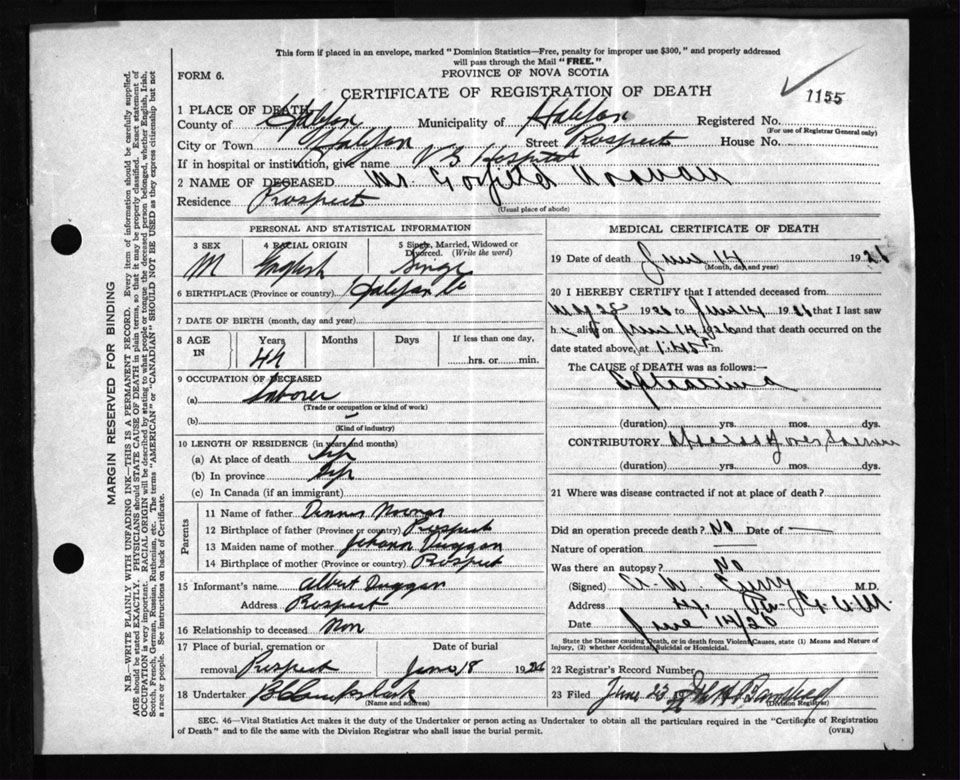 This form if placed in an envelope, marked "Dominion Statistics—Free, penalty for improper use $300," and properly addressed
will pass through the Mail "FREE."
FORM 6.
PROVINCE OF NOVA SCOTIA
CERTIFICATE OF REGISTRATION OF DEATH
1155
1 PLACE OF DEATH
County of Halifax Municipality of Halifax Registered No.
(For use of Registrar General only)
City or Town Halifax Street Prospect House No.
If in hospital or institution, give name V G Hospital
2 NAME OF DECEASED Mr.
Residence Prospect
(Usual place of abode)
PERSONAL AND STATISTICAL INFORMATION
3 SEX 4 RACIAL ORIGIN 5 Single, Married, Widowed or Divorced. (Write the word)
M English Single
6 BIRTHPLACE (Province or country) Halifax Co
7 DATE OF BIRTH (month, day and year)
8 AGE IN Years Months Days If less than one day,
hrs. or min.
9 OCCUPATION OF DECEASED
(a) Laborer
(Trade or occupation or kind of work)
(b)
(Kind of industry)
10 LENGTH OF RESIDENCE (in years and months)
(a) At place of death Life
(b) In province Life
(c) In Canada (if an immigrant)
Parents
11 Name of father Dennis
12 Birthplace of father (Province or country) Prospect
13 Maiden name of mother Johann Duggan
14 Birthplace of mother (Province or country) Prospect
15 Informant's name Albert Duggan
Address Prospect
16 Relationship to deceased Non
17 Place of burial, cremation or Date of burial
removal Prospect June 18 1926
18 Undertaker
(Name and address)
MEDICAL CERTIFICATE OF DEATH
19 Date of death June 14 1926
(Month, day and year)
20 I HEREBY CERTIFY that I attended deceased from
May 28 1926 to June 14 1926 that I last saw
h alive on June 14 1926 and that death occurred on
date stated above, at 1.45 m.
The CAUSE OF DEATH was as follows:—
(duration) yrs. mos. dys.
CONTRIBUTORY
(duration) yrs. mos. dys.
21 Where was disease contracted if not at place of death?
Did an operation precede death? No Date of —
Nature of operation
Was there an autopsy? No
(Signed) Curry M.D.
Address
Date June 14/26
State the Disease causing Death, or in death from Violent Causes, state (1) Means and Nature of
Injury, (2) whether Accidental, Suicidal or Homicidal.
22 Registrar's Record Number
23 Filed June 23
(Division Registrar)
SEC. 46—Vital Statistics Act makes it the duty of the Undertaker or person acting as Undertaker to obtain all the particulars required in the "Certificate of Registration
of Death" and to file the same with the Division Registrar who shall issue the burial permit.
(OVER)
MARGIN RESERVED FOR BINDING
N.B.—WRITE PLAINLY WITH UNFADING INK—THIS IS A PERMANENT RECORD. Every item of information should be carefully supplied.
AGE should be stated EXACTLY. PHYSICIANS should STATE CAUSE OF DEATH in plain terms, so that it may be properly classified. Exact statement of
OCCUPATION is very important. RACIAL ORIGIN will be described by stating to what people or tongue the deceased person belonged, whether English, Irish,
Scotch, French, German, Russian, Ruthenian, etc. The terms "AMERICAN" or "CANADIAN" SHOULD NOT BE USED as they express citizenship but not
a race or people. See instructions on back of Certificate.